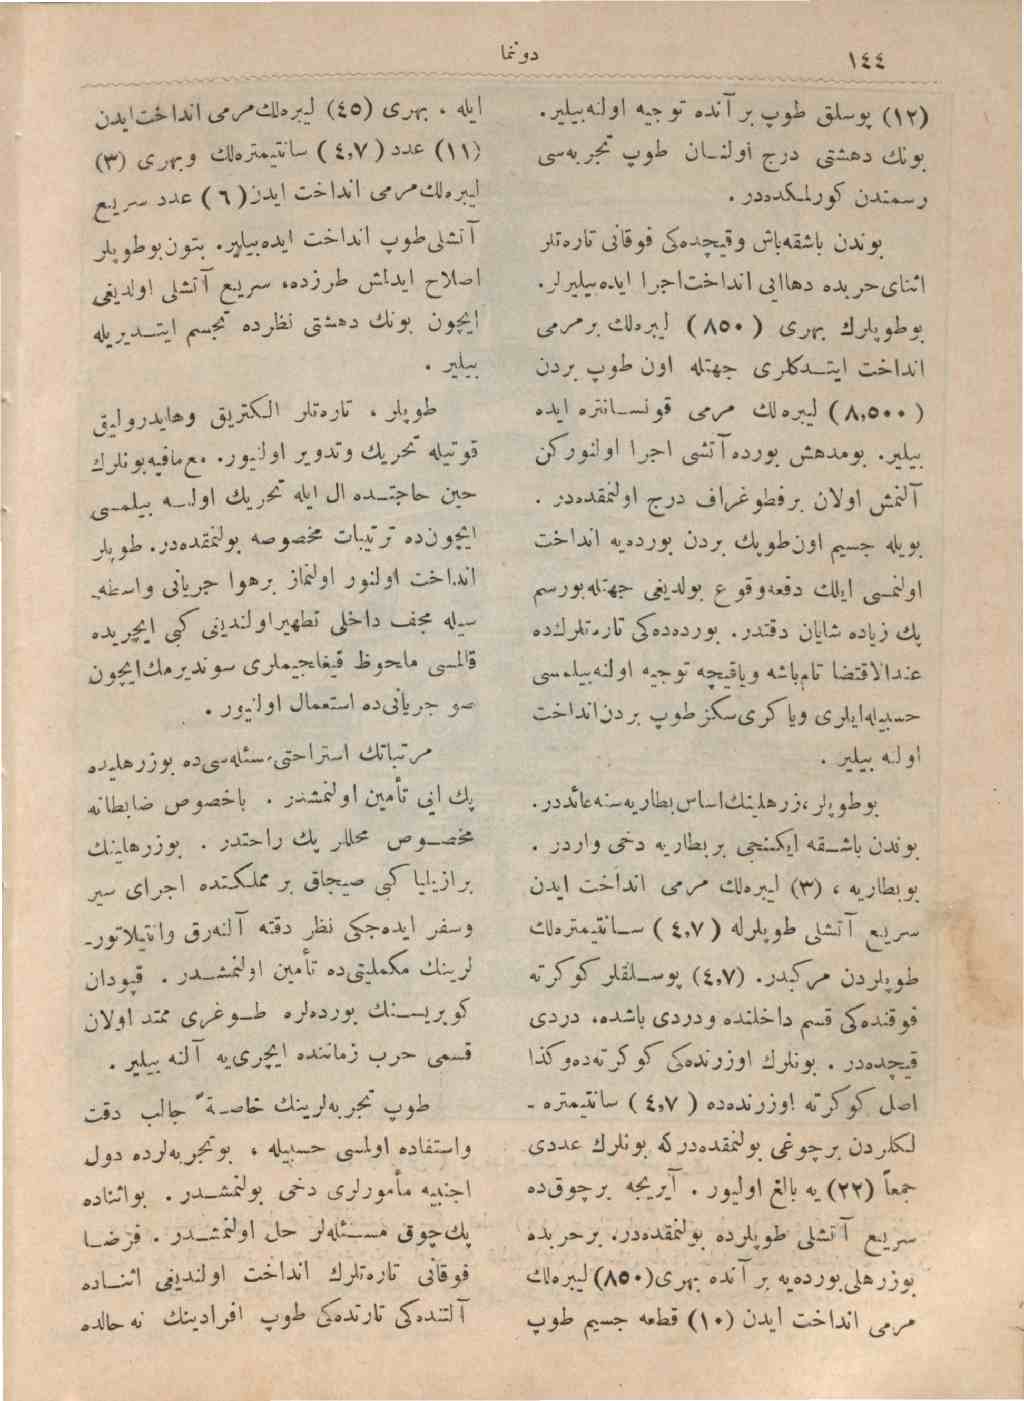 ١٤٤
دوننما
(١٢) پوسلق طوپ بر آنده توجیه اولنه‌بیلیر.
بونك دهشتی درج اولنـان طوپ تجربه‌سی
رسمندن كورلمكده‌در .
بوندن باشقه‌باش وقیچده‌كی فوقانی تاره‌تلر
اثنای حربده دهاایی انداخت اجرا ایده‌بیلیرلر.
بوطوپلرك بهری (٨٥٠) لیبره‌لك برمرمی
انداخت ایتـدكلری جهتله اون طوپ بردن
(٨,٥٠٠) لیبره لك مرمی قونسـانتره ایده
بیلیر. بومدهش بورده‌آتشی اجرا اولنوركن
آلنمش اولان برفطوغراف درج اولنمقده‌در .
بویله جسیم اون‌طوپك بردن بورده‌یه انداخت
اولنمسی ایلك دفعه‌وقوع بولدیغی جهتله‌بورسم
پك زیاده شایان دقتدر. بورده‌ده‌كی تاره‌تلرك‌ده
عندالاقتضا تام‌باشه ویاقیچه توجیه اولنه‌بیلمسی
حسبیله‌ایلری ویاكری‌سكزطوپ بردن‌انداخت
اولنه بیلیر .
بوطوپلر،زرهلینك‌اساس‌بطاریه‌سنه‌عائددر.
بوندن باشـقه ایكنجی بربطاریه دخی واردر .
بوبطاریه ، (٣) لیبره‌لك مرمی انداخت ایدن
سریع آتشلی طوپلرله (٤,٧) سـانتیمتره‌لك
طوپلردن مركبدر. (٤,٧) پوسـلقلر كوكرته
فوقنده‌كی قسم داخلنده ودردی باشده، دردی
قیچده‌در . بونلرك اوزرنده‌كی كوكرته‌ده‌وكذا
اصل كوكرته اوزرنده‌ده (٤,٧) سانتیمتره -
لكلردن برچوغی بولنمقده‌دركه بونلرك عددی
جمعاً (٢٢) یه بالغ اولیور . آیریجه برچوق‌ده
سریع آتشلی طوپلرده بولنمقده‌در. برحربده
بوزرهلی‌بورده‌یه بر آنده بهری(٨٥٠)لیبره‌لك
مرمی انداخت ایدن (١٠) قطعه جسیم طوپ
ایله ، بهری (٤٥) لیبره‌لك‌مرمی انداخت‌ایدن
(١١) عدد (٤,٧) سانتیمتره‌لك وبهری (٣)
لیبره‌لك‌مرمی انداخت ایدن(٦) عدد سریع
آتشلی‌طوپ انداخت ایده‌بیلیر. بتون‌بوطوپلر
اصلاح ایدلش طرزده، سریع آتشلی اولدیغی
ایچون بونك دهشتی نظرده تجسم ایتـدیریله
بیلیر .
طوپلر ، تاره‌تلر الكتریق وهایدرولیق
قوتیله تحریك وتدویر اولنیور. مع‌مافیه‌بونلرك
حین حاجتـده ال ایله تحریك اولنـه بیلمسی
ایچون‌ده ترتیبات مخصوصه بولنمقده‌در. طوپلر
انداخت اولنور اولنماز برهوا جریانی واسطه‌ـ
سیله مجفف داخلی تطهیراولندیغی كبی ایچریده
قالمسی ملحوظ قیغلجیملری سوندیرمك‌ایچون
صو جریانی‌ده استعمال اولنیور .
مرتباتك استراحتی‌مسئله‌سی‌ده بوزرهلیده
پك ایی تأمین اولنمشدر . باخصوص ضابطانه
مخصـوص محللر پك راحتدر . بوزرهلینك
برازیلیا كبی صیجاق بر مملكتده اجرای سیر
وسفر ایده‌جكی نظر دقته آلنه‌رق وانتیلاتورـ
لرینك مكملیتی‌ده تأمین اولنمشـدر . قپودان
كوپریـسنك بورده‌لره طـوغری ممتد اولان
قسمی حرب زماننده ایچری‌یه آلنه بیلیر .
طوپ تجربه‌لرینك خاصـةً جالب دقت
واستفاده اولمسی حسبیله ، بوتجربه‌لرده دول
اجنبیه مأمورلری دخی بولنمشـدر . بواثناده
پك‌چوق مسـئله‌لر حل اولنمشـدر . فرضـا
فوقانی تاره‌تلرك انداخت اولندیغی اثنـاده
آلتنده‌كی تارتده‌كی طوپ افرادینك نه حالده